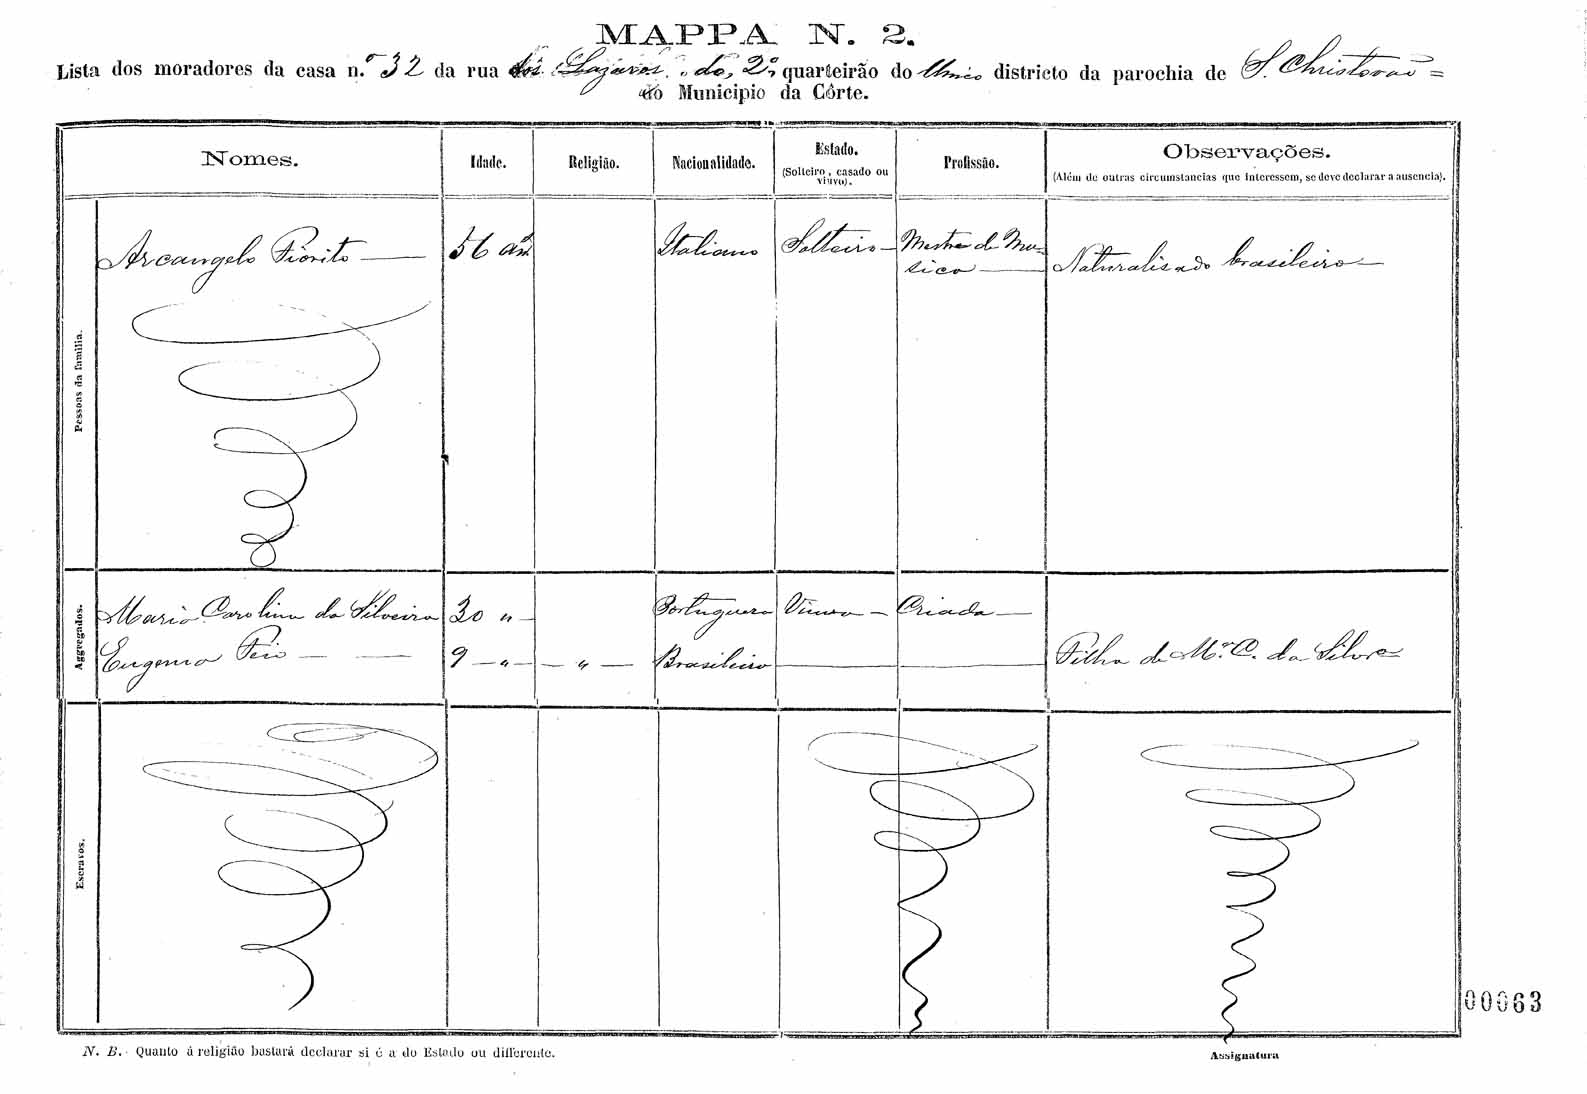 MAPPA N. 2.
Lista dos moradores da casa n.º 32 da rua dos Lazaros do 2º quarteirão do Unico districto da parochia de S. Christovaõ =
do Municipio da Côrte.
Nomes. Idade. Religião. Nacionalidade. Estado. Profissão. Observações.
(Solteiro, casado ou viuvo). (Além de outras circumstancias que interessem, se deve declarar a ausencia).
Pessoas da familia.
Arcangelo Fiorito — 56 an. Italiano Solteiro — Mestre de Mu-
sica — Naturalisado brasileiro —
Aggregados.
Maria Carolina da Silveira 30 " — Portugueza Viuva — Criada —
Eugenia — — 9 — " — — " — Brasileira — — Filha de M.ª C. da Silvra
Escravos.
00063
N. B. Quanto á religião bastará declarar si é a do Estado ou differente.
Assignatura